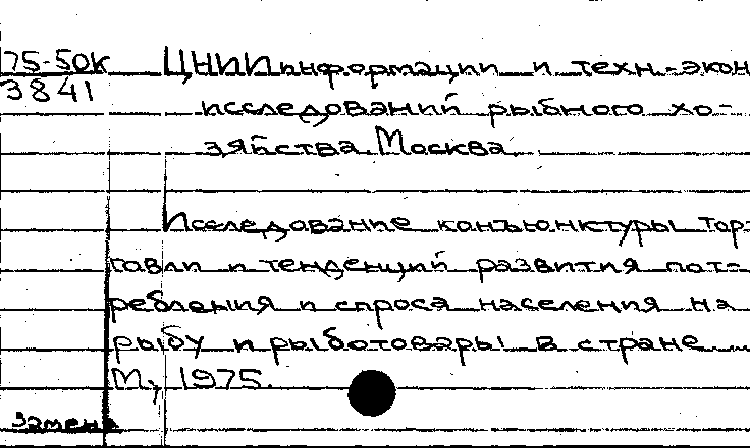 75-50к ЦНИИинформации и техн.-экон
3841
исследований рыбного хо-
зяйства. Москва.
Исследование конъюнктуры тор-
говли и тенденций развития пот-
ребления и спроса населения на
рыбу и рыботовары в стране...
М., 1975.
Замена